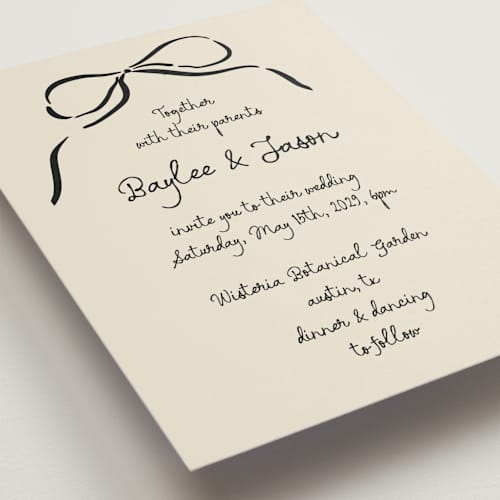 Together
with their parents
Baylee & Jason
invite you to their wedding
Saturday, May 15th, 2029, 6pm
Wisteria Botanical Garden
austin, tx
dinner & dancing
to follow